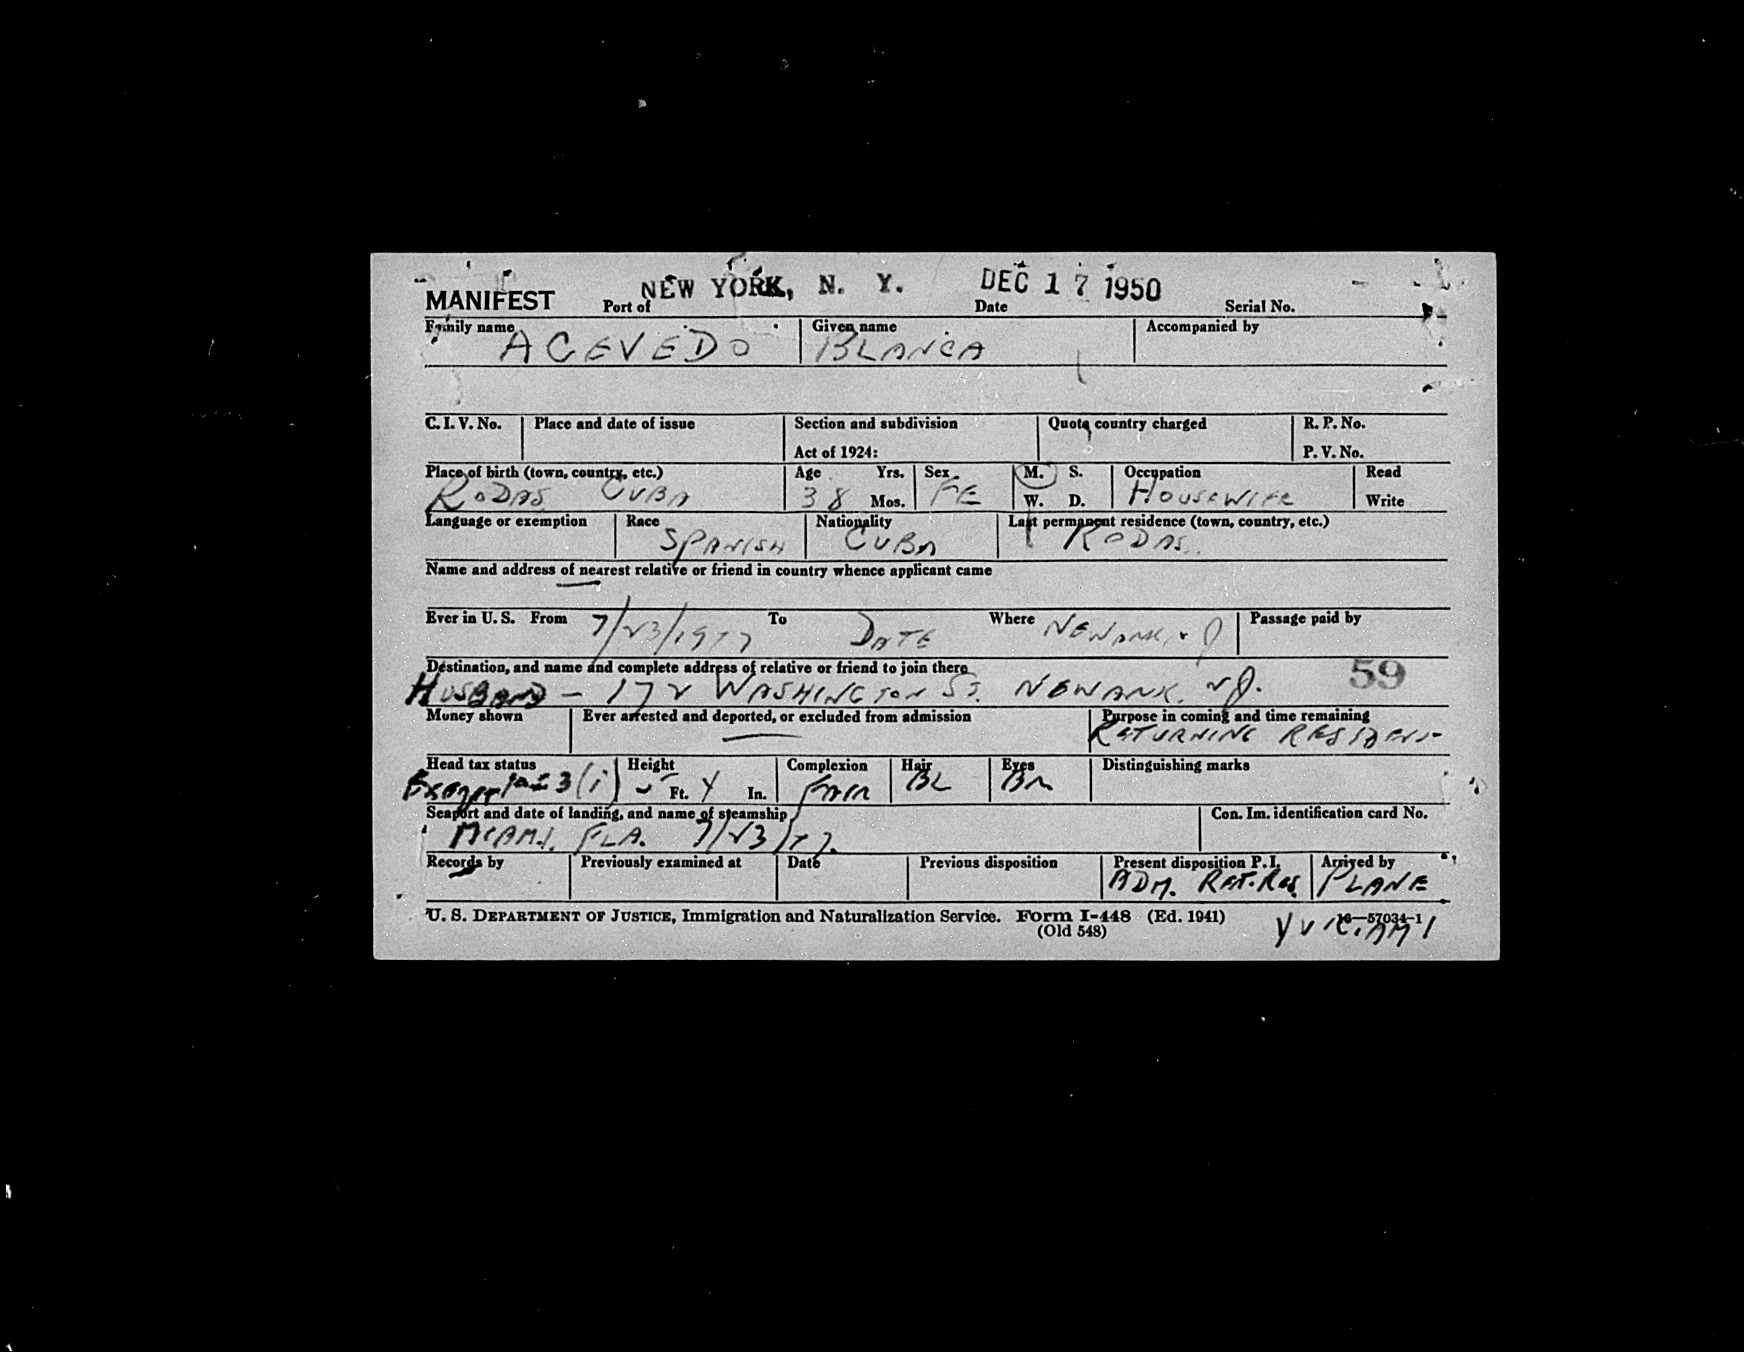 MANIFEST Port of NEW YORK, N. Y. DEC 17 1950 Date Serial No.
Family name ACEVEDO Given name BLANCA Accompanied by
C. I. V. No. Place and date of issue Section and subdivision Quota country charged R. P. No.
Act of 1924: P. V. No.
Place of birth (town, country, etc.) Age Yrs. Sex M. S. Occupation Read
RODAS CUBA 38 Mos. FE W. D. HOUSEWIFE Write
Language or exemption Race Nationality Last permanent residence (town, country, etc.)
SPANISH CUBA RODAS
Name and address of nearest relative or friend in country whence applicant came
Ever in U. S. From 7/23/1977 To DATE Where NEWARK, NJ Passage paid by
Destination, and name and complete address of relative or friend to join there 59
HUSBAND - 172 WASHINGTON ST. NEWARK. NJ.
Money shown Ever arrested and deported, or excluded from admission Purpose in coming and time remaining
RETURNING RESIDENT
Head tax status Height Complexion Hair Eyes Distinguishing marks
Exempt 3(i) Ft. 4 In. FAIR BL BR
Seaport and date of landing, and name of steamship Con. Im. identification card No.
MIAMI, FLA. 7/23/
Records by Previously examined at Date Previous disposition Present disposition P. I. Arrived by
ADM. RET. RES. PLANE
U. S. DEPARTMENT OF JUSTICE, Immigration and Naturalization Service. Form I-448 (Ed. 1941) 16—57034-1
(Old 548)